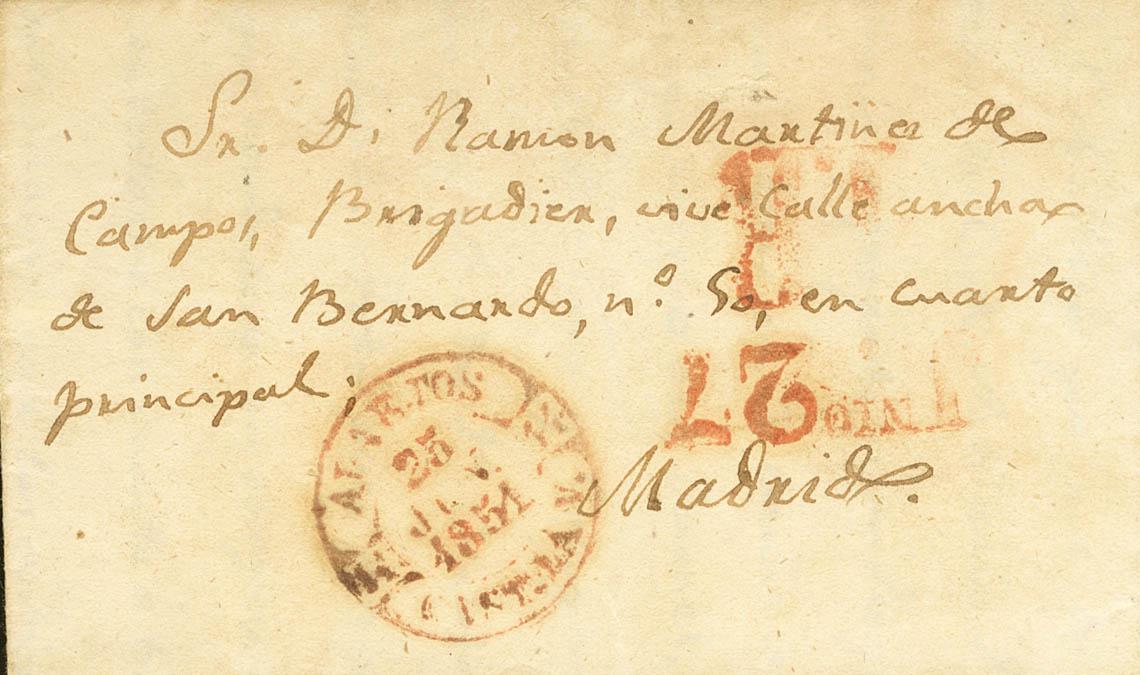 Sr. D. Ramon Martinez de
Campos, Brigadier, vive Calle ancha
de San Bernardo, n.º 50, en cuarto
principal;
Madrid.
27
JUNIO
25
1851